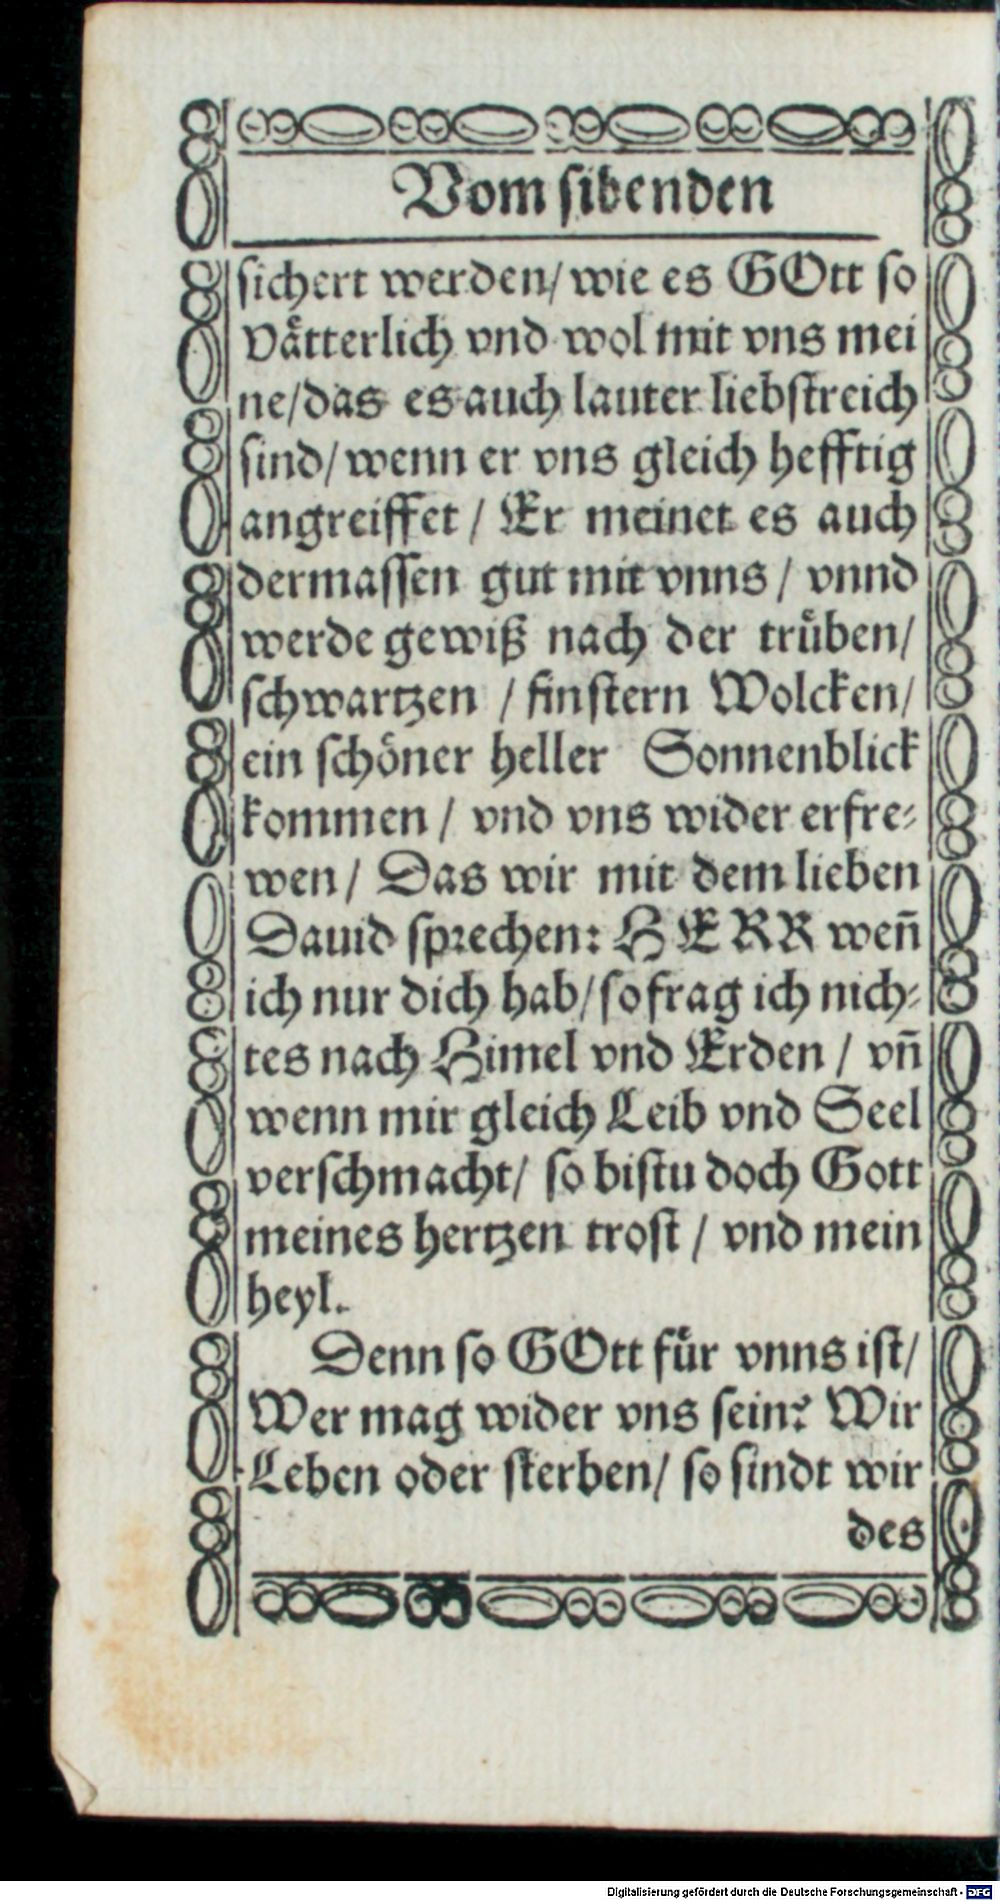 Vom sibenden
sichert werden/ wie es GOtt so
Vaͤtterlich vnd wol mit vns mei
ne/das es auch lauter liebstreich
sind/ wenn er vns gleich hefftig
angreiffet / Er meinet es auch
dermassen gut mit vnns / vnnd
werde gewiß nach der truͤben/
schwartzen / finstern Wolcken/
ein schöner heller Sonnenblick
kommen / vnd vns wider erfre⸗
wen/ Das wir mit dem lieben
Dauid sprechen: HERR weñ
ich nur dich hab/ so frag ich nich⸗
tes nach Himel vnd Erden / vñ
wenn mir gleich Leib vnd Seel
verschmacht/ so bistu doch Gott
meines hertzen trost / vnd mein
heyl.
Denn so GOtt fuͤr vnns ist/
Wer mag wider vns sein? Wir
Leben oder sterben/ so sindt wir
des
Digitalisierung gefördert durch die Deutsche Forschungsgemeinschaft - DFG